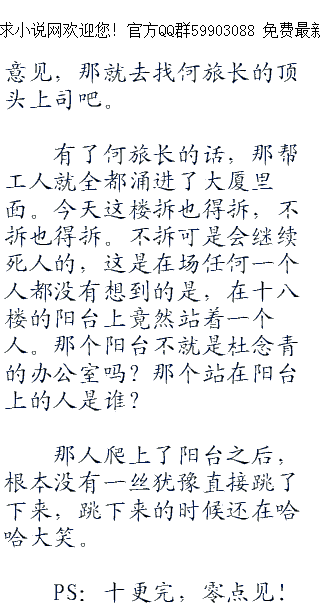 求小说网欢迎您！官方QQ群59903088 免费最新
意见，那就去找何旅长的顶
头上司吧。
有了何旅长的话，那帮
工人就全都涌进了大厦里
面。今天这楼拆也得拆，不
拆也得拆。不拆可是会继续
死人的，这是在场任何一个
人都没有想到的是，在十八
楼的阳台上竟然站着一个
人。那个阳台不就是杜念青
的办公室吗？那个站在阳台
上的人是谁？
那人爬上了阳台之后，
根本没有一丝犹豫直接跳了
下来，跳下来的时候还在哈
哈大笑。
PS：十更完，零点见！